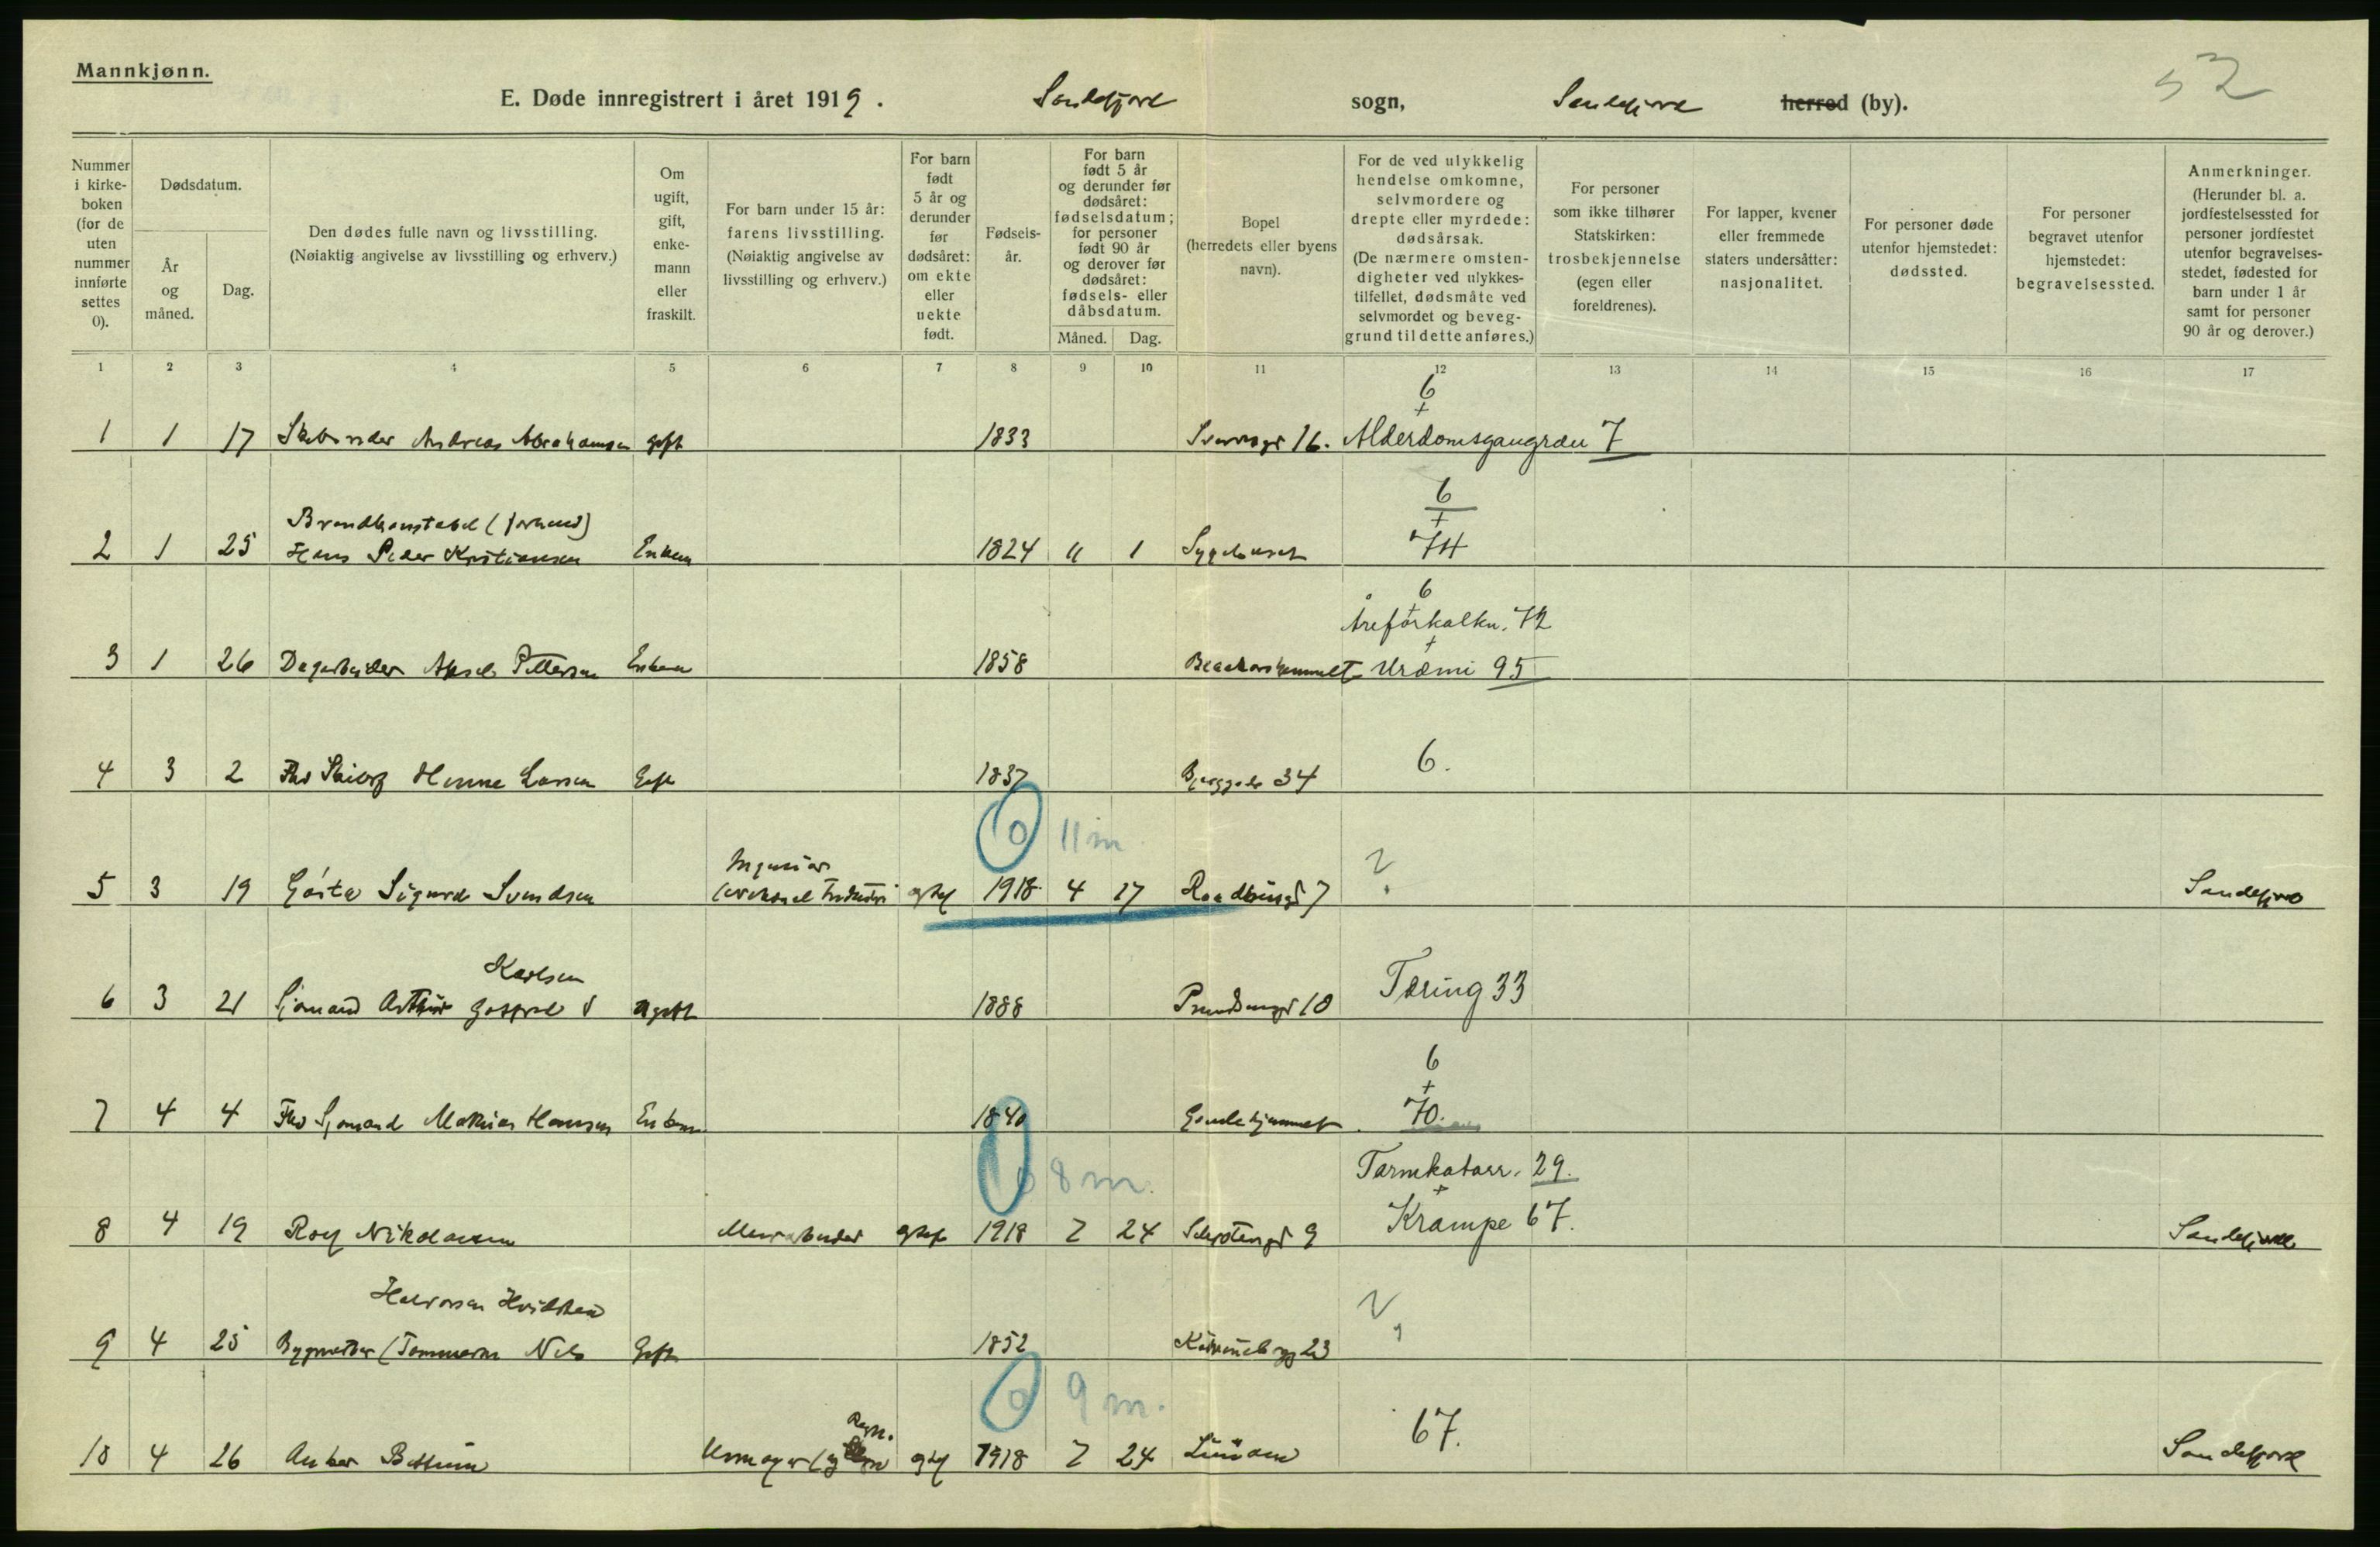 Mannkjønn.
52
E. Døde innregistrert i året 1919. Sandefjord sogn, Sandefjord herred (by).
Nummer i kirke-boken (for de uten nummer innførte settes 0).
Dødsdatum.
År og måned.
Dag.
Den dødes fulle navn og livsstilling.
(Nøiaktig angivelse av livsstilling og erhverv.)
Om ugift, gift, enke-mann eller fraskilt.
For barn under 15 år: farens livsstilling.
(Nøiaktig angivelse av livsstilling og erhverv.)
For barn født 5 år og derunder før dødsåret: om ekte eller uekte født.
Fødsels-år.
For barn født 5 år og derunder før dødsåret: fødselsdatum; for personer født 90 år og derover før dødsåret: fødsels- eller dåbsdatum.
Måned.
Dag.
Bopel
(herredets eller byens navn).
For de ved ulykkelig hendelse omkomne, selvmordere og drepte eller myrdede: dødsårsak.
(De nærmere omsten-digheter ved ulykkes-tilfellet, dødsmåte ved selvmordet og beveg-grund til dette anføres.)
For personer som ikke tilhører Statskirken: trosbekjennelse (egen eller foreldrenes).
For lapper, kvener eller fremmede staters undersåtter: nasjonalitet.
For personer døde utenfor hjemstedet: dødssted.
For personer begravet utenfor hjemstedet: begravelsessted.
Anmerkninger.
(Herunder bl. a. jordfestelsessted for personer jordfestet utenfor begravelses-stedet, fødested for barn under 1 år samt for personer 90 år og derover.)
1 2 3 4 5 6 7 8 9 10 11 12 13 14 15 16 17
6
+
1 1 17 Andreas Abrahamsen gift 1833 16. Alderdomsgangræn 7
6
+
Brandkonstabel (forhend)
2 1 25 Hans Peder Kristiansen Enkem 1824 11 1 Sygehuset 74
6
+
Åreforkalkn. 72
+
3 1 26 Dagarbeider Aksel Pettersen Enkem 1858 Uræmi 95
4 3 2 Fhv Hanne Larsen Gift 1837 34 6.
0 11 m.
Ingeniør
5 3 19 Gösta Sigurd Svendsen ægtef 1918 4 17 7 ? Sandefjord
Karlsen
6 3 21 Sjømand Arthur ugift 1888 10 Tæring 33
6
+
7 4 4 Fhv Sjømand Mathias Hansen Enkem 1840 Gamlehjemmet 70.
0 8 m.
Tarmkatarr. 29.
+
8 4 19 Roy Nikolaisen ægtef 1918 7 24 9 Krampe 67. Sandefjord
Halvorsen
9 4 25 Nils Gift 1852 23 ?
0 9 m.
10 4 26 Anker Bettum Urmager ægtef 1918 7 24 67. Sandefjord